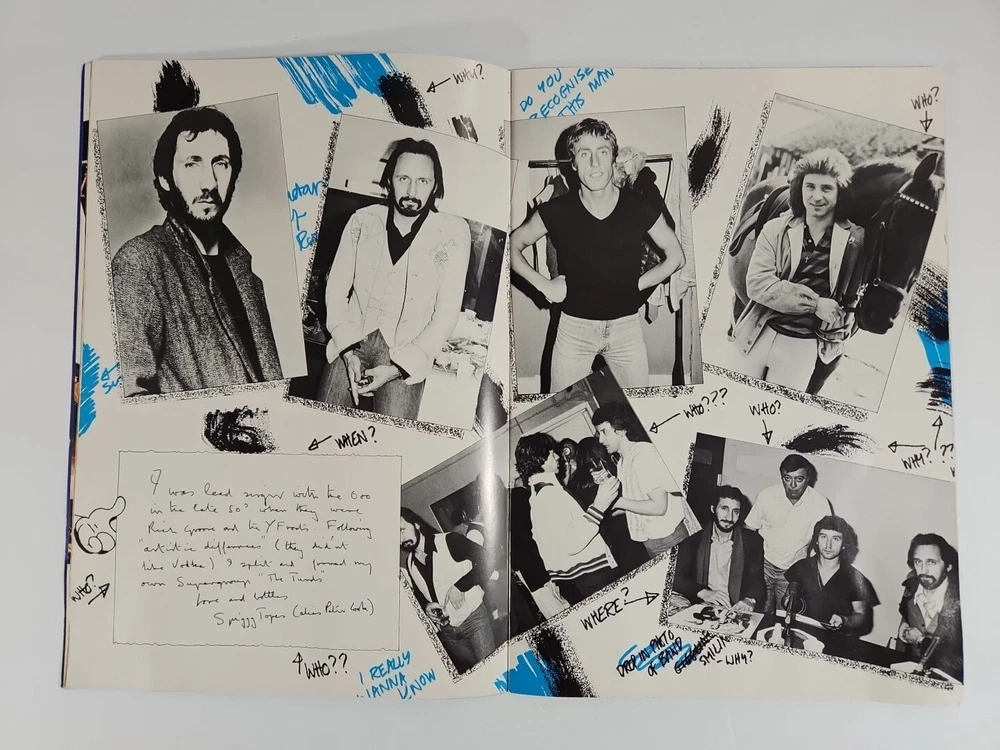 WHO?
DO YOU
RECOGNISE
THIS MAN
WHO?
WHEN?
WHO???
WHO?
WHY???
I was lead singer with the Ooo
in the late 50s when they were
Rick Groove and the Y Fronts. Following
"artistic differences" (they didn't
like Vodka) I split and formed my
own Supergroup "The Turds"
Love and bottles
Spiggy Topes (alias Peter Cook)
WHO?
WHO??
I REALLY
WANNA KNOW
WHERE?
DROP IN PHOTO
OF BAND
SMILIN
- WHY?